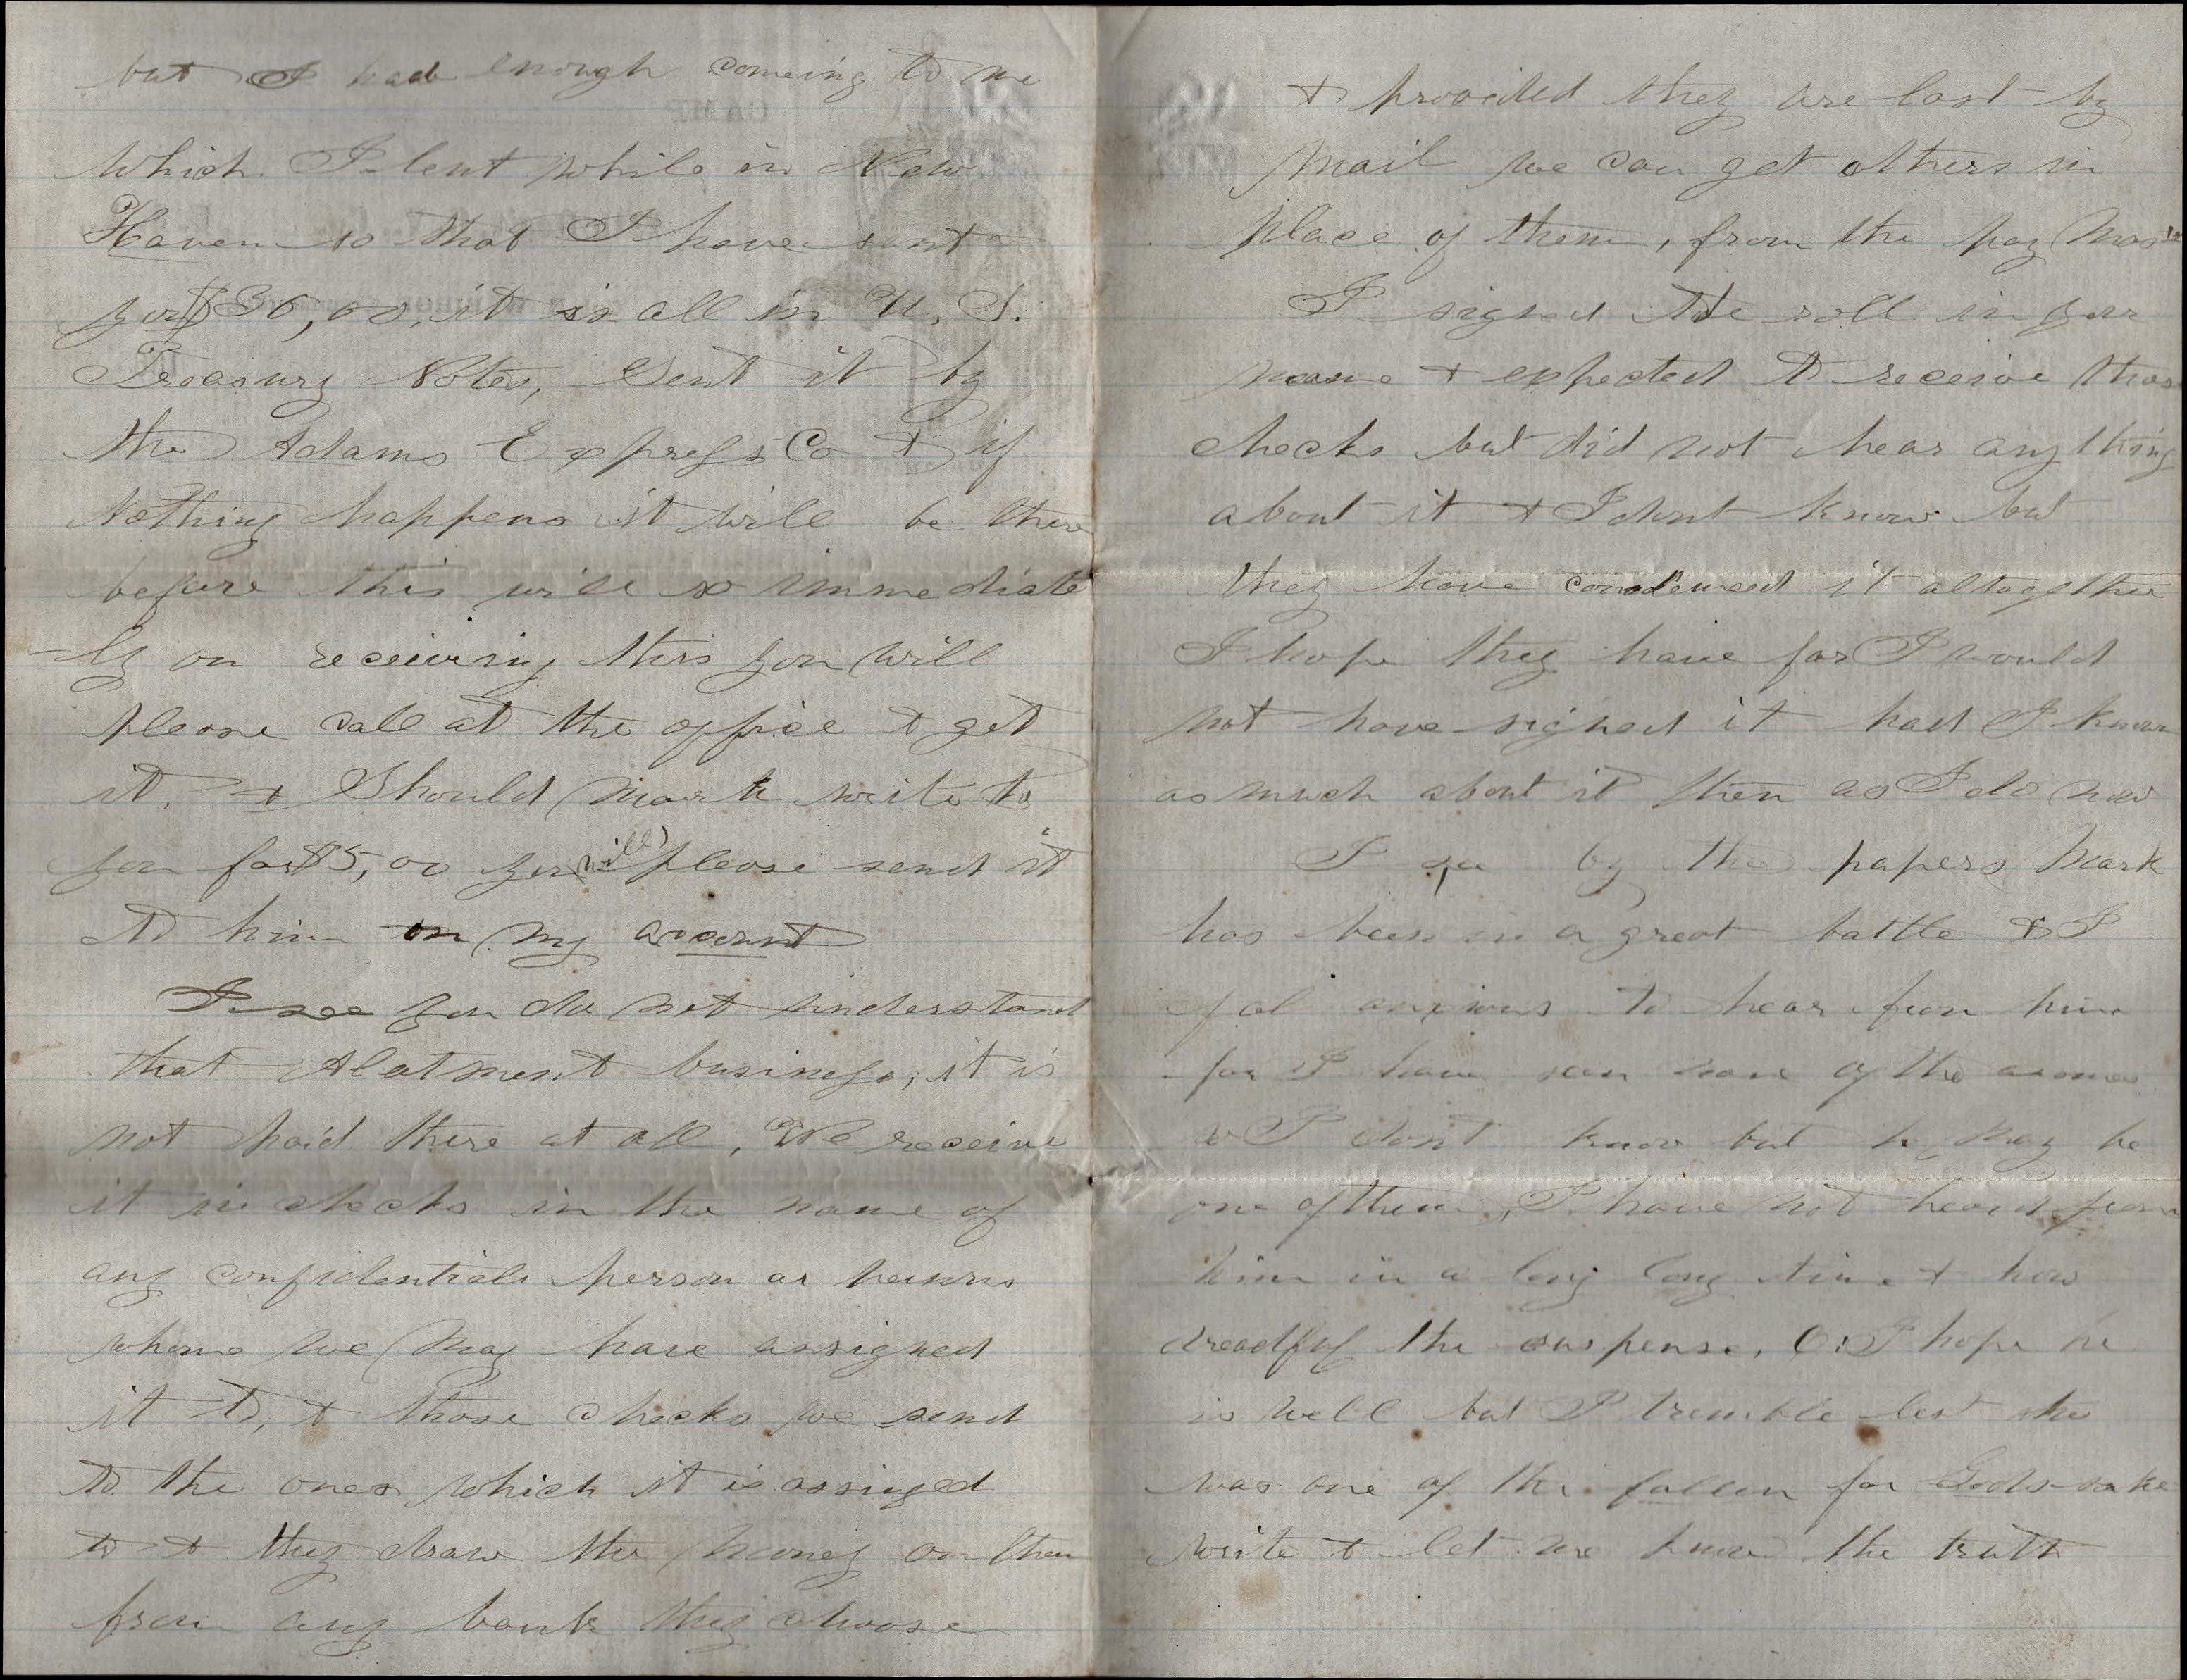 but I had enough comeing to me
which I lent while in New
Haven so that I have sent
you $30,00, it is all in U, S.
Treasury Notes, Sent it by
the Adams Expreſs Co & if
Nothing happens it will be there
before this will so immediate
-ly on receiving this you will
please call at the office & get
it, & Should Mark write to
you for $5,00 you will please send it
to him on my account
I see you do not understand
that Alotment buisineſs, it is
not paid there at all, We receive
it in checks in the name of
any confidential person or persons
whome we may have assigned
it to, & those checks we send
to the ones which it is assinged
to & they draw the money on them
from any bank they choose
& provided they are lost by
mail we can get others in
place of them, from the pay Mastr
I signed the roll in your
name & expected to receive those
checks but did not hear any thing
about it & I dont know but
they have condemed it altogether
I hope they have for I would
not have signed it had I known
as much about it then as I do now
I see by the papers Mark
has been in a great battle & I
feel anxious to hear from him
for I have seen none of the
so I don't know but he may be
one of them, I have not heard from
him in a long long time & how
dreadful the suspense, O! I hope he
is well but I tremble lest he
was one of the fallen for Gods sake
write & let me know the truth
CAMP